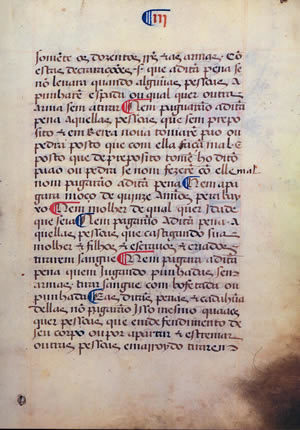 III
somente os dozentos rrs & as armas. Cõ
estas decraraçoões .s. que a dita pena se
nõ levara quando algũuas pessoas, a
punharẽ espada ou qual quer outra
arma sem a tirar Nem paguarão a dita
pena aquellas pessoas, que sem prepo
sito & em Reixa nova tomarẽ pao ou
pedra posto que com ella faça mal. E
posto que de preposito tome & ho dito
paao ou pedra se nom fezerẽ cõ elle mal
nom pagarão a dita pena Nem a pa
gara moço de quinze Annos, pera bay
xo Nem molher de qual quer idade
que seia Nem paguarão A dita pena a
quellas, pessoas, que castigando sua
molher & filhos, & escravos, & criados,
tirarem sangue Nem pagara a dita
pena quem Jugando punhadas, sem
armas, tirar sangue com bofetada ou
punhada E as, ditas, penas, & cada hũa
dellas, nõ pagarão Isso mesmo quaaes
quer pessoas, que em defendimento de
seu corpo ou por apartar & estremar
outras, pessoas em arroydo tirarem